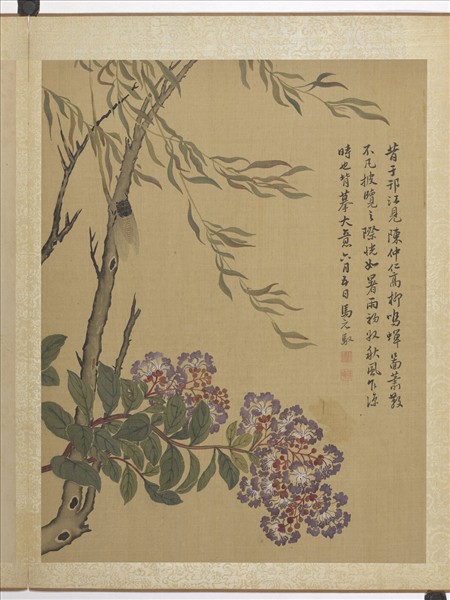 昔于邗江見陳仲仁高柳鳴蟬畾蕭散
不凡披覽之際恍如暑雨初收秋風乍涼
時也背摹大意六月五日馬元馭